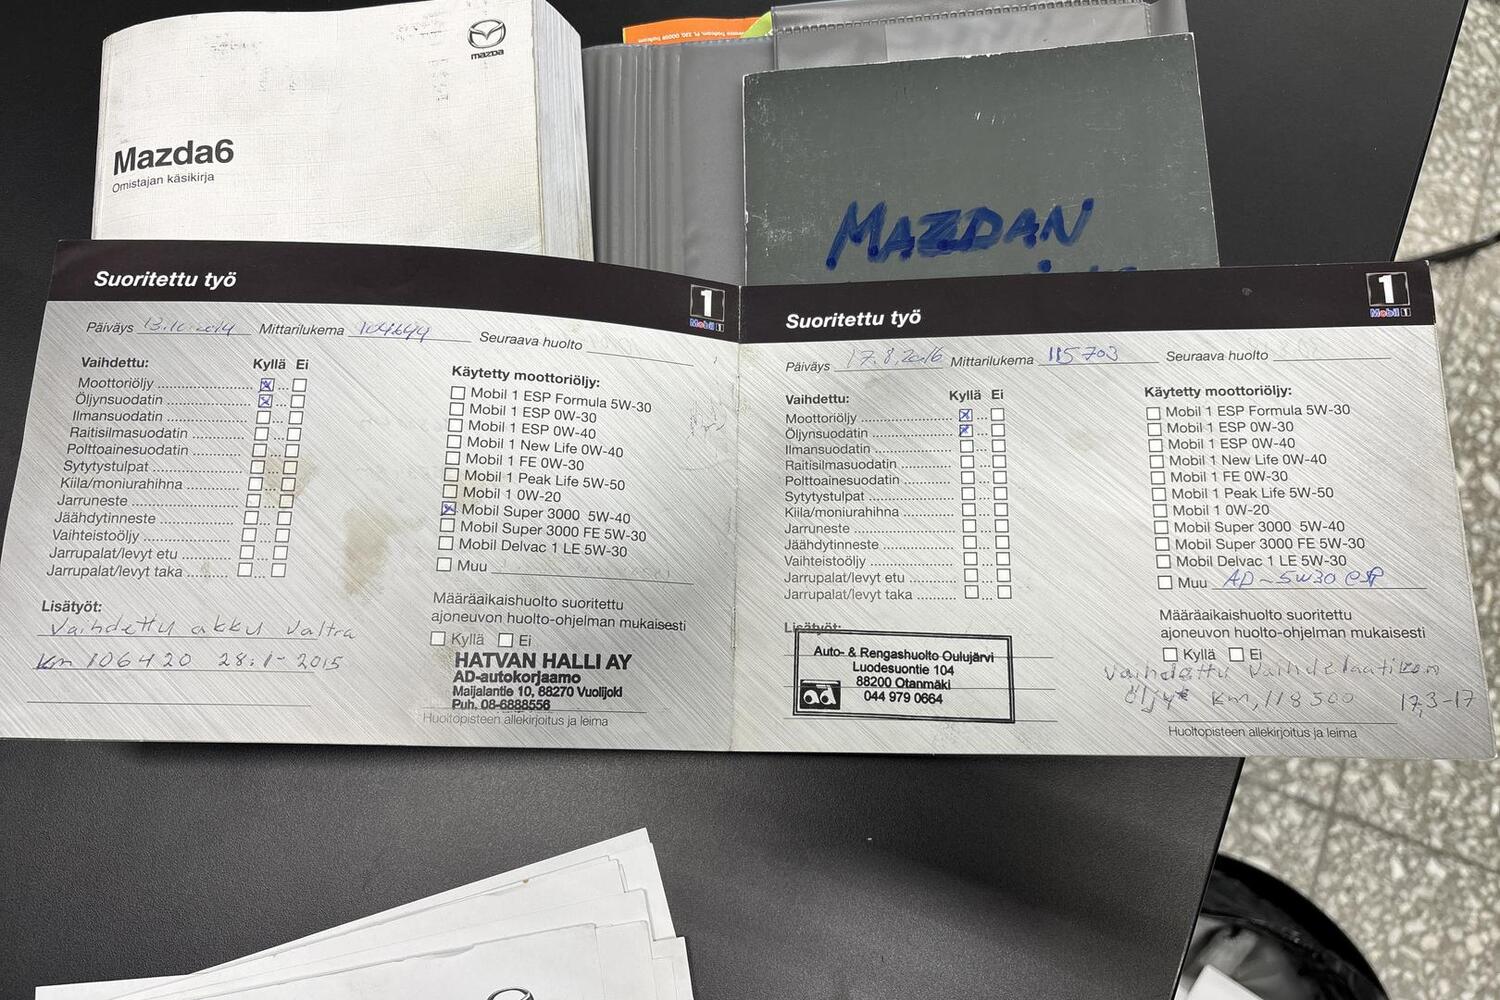 mazda
Mazda6
Omistajan käsikirja
MAZDAN
Suoritettu työ
1
Mobil 1
Päiväys 13.10.2014 Mittarilukema 104644 Seuraava huolto
Vaihdettu: Kyllä Ei
Moottoriöljy
Öljynsuodatin
Ilmansuodatin
Raitisilmasuodatin
Polttoainesuodatin
Sytytystulpat
Kiila/moniurahihna
Jarruneste
Jäähdytinneste
Vaihteistoöljy
Jarrupalat/levyt etu
Jarrupalat/levyt taka
Lisätyöt:
Vaihdettu akku Valtra
Km 106420 28.1-2015
Käytetty moottoriöljy:
Mobil 1 ESP Formula 5W-30
Mobil 1 ESP 0W-30
Mobil 1 ESP 0W-40
Mobil 1 New Life 0W-40
Mobil 1 FE 0W-30
Mobil 1 Peak Life 5W-50
Mobil 1 0W-20
Mobil Super 3000 5W-40
Mobil Super 3000 FE 5W-30
Mobil Delvac 1 LE 5W-30
Muu
Määräaikaishuolto suoritettu
ajoneuvon huolto-ohjelman mukaisesti
Kyllä Ei
HATVAN HALLI AY
AD-autokorjaamo
Maijalantie 10, 88270 Vuolijoki
Puh. 08-6888556
Huoltopisteen allekirjoitus ja leima
Suoritettu työ
1
Mobil 1
Päiväys 17.8.2016 Mittarilukema 115703 Seuraava huolto
Vaihdettu: Kyllä Ei
Moottoriöljy
Öljynsuodatin
Ilmansuodatin
Raitisilmasuodatin
Polttoainesuodatin
Sytytystulpat
Kiila/moniurahihna
Jarruneste
Jäähdytinneste
Vaihteistoöljy
Jarrupalat/levyt etu
Jarrupalat/levyt taka
Lisätyöt:
Auto- & Rengashuolto Oulujärvi
Luodesuontie 104
88200 Otanmäki
044 979 0664
ad
Käytetty moottoriöljy:
Mobil 1 ESP Formula 5W-30
Mobil 1 ESP 0W-30
Mobil 1 ESP 0W-40
Mobil 1 New Life 0W-40
Mobil 1 FE 0W-30
Mobil 1 Peak Life 5W-50
Mobil 1 0W-20
Mobil Super 3000 5W-40
Mobil Super 3000 FE 5W-30
Mobil Delvac 1 LE 5W-30
Muu AD-5W30 ESP
Määräaikaishuolto suoritettu
ajoneuvon huolto-ohjelman mukaisesti
Kyllä Ei
Vaihdettu Vaihdelaatikon
öljyt Km, 118500 17,3-17
Huoltopisteen allekirjoitus ja leima